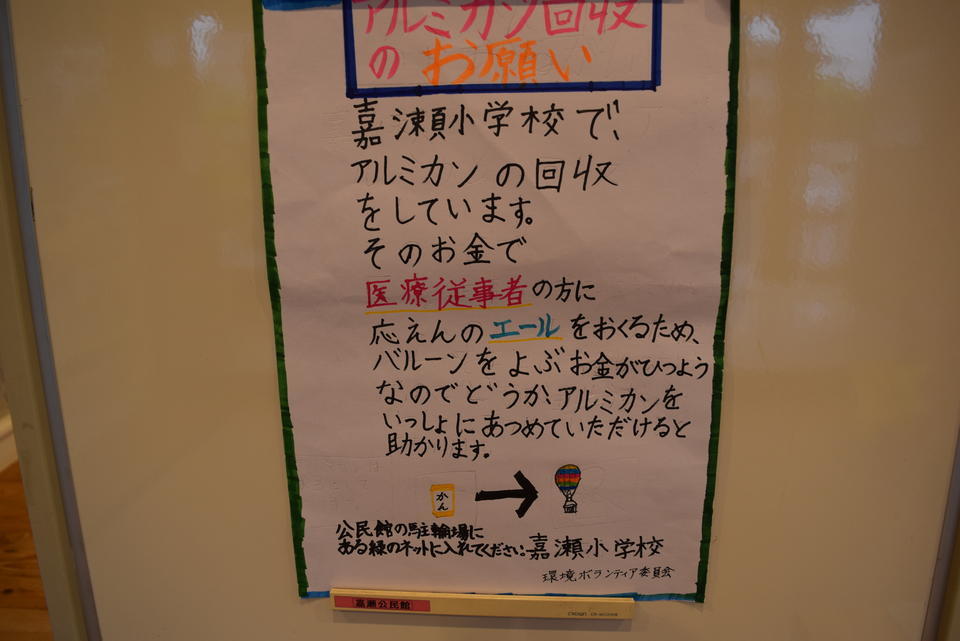 アルミカン回収
の お願い
嘉瀬小学校で、
アルミカンの回収
をしています。
そのお金で
医療従事者の方に
応えんのエールをおくるため、
バルーンをよぶお金がひつよう
なのでどうか、アルミカンを
いっしょにあつめていただけると
助かります。
かん
公民館の駐輪場に
ある緑のネットに入れてください。
嘉瀬小学校
環境ボランティア委員会
嘉瀬公民館
crown